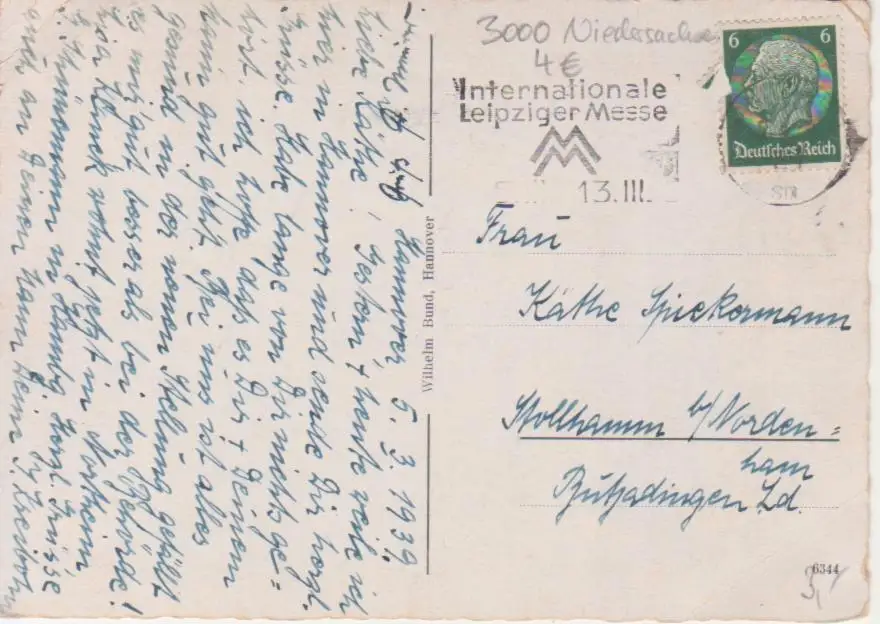 Hannover, 5.3.1939
Liebe Käthe! Gestern + heute weile ich
hier in Hannover und sende Dir herzl.
Grüsse. Habe lange von Dir nichts ge=
hört. ich hoffe daß es Dir + Deinem
Hann gut geht. Bei uns ist alles
gesund in der neuen Stellung gefällt
es mir gut besser als bei der Behörde!
wohnt jetzt in Northeim
in Hambg. Herzl. Grüsse
auch an Deinen Mann Deine
Wilhelm Bund, Hannover
3000 Niedersachsen
4 €
Internationale
Leipziger Messe
MM
13.III.
6 6
Deutsches Reich
Frau
Käthe Spiekermann
Stollhamm b/Norden=
ham
Butjadingen Ld.
6344